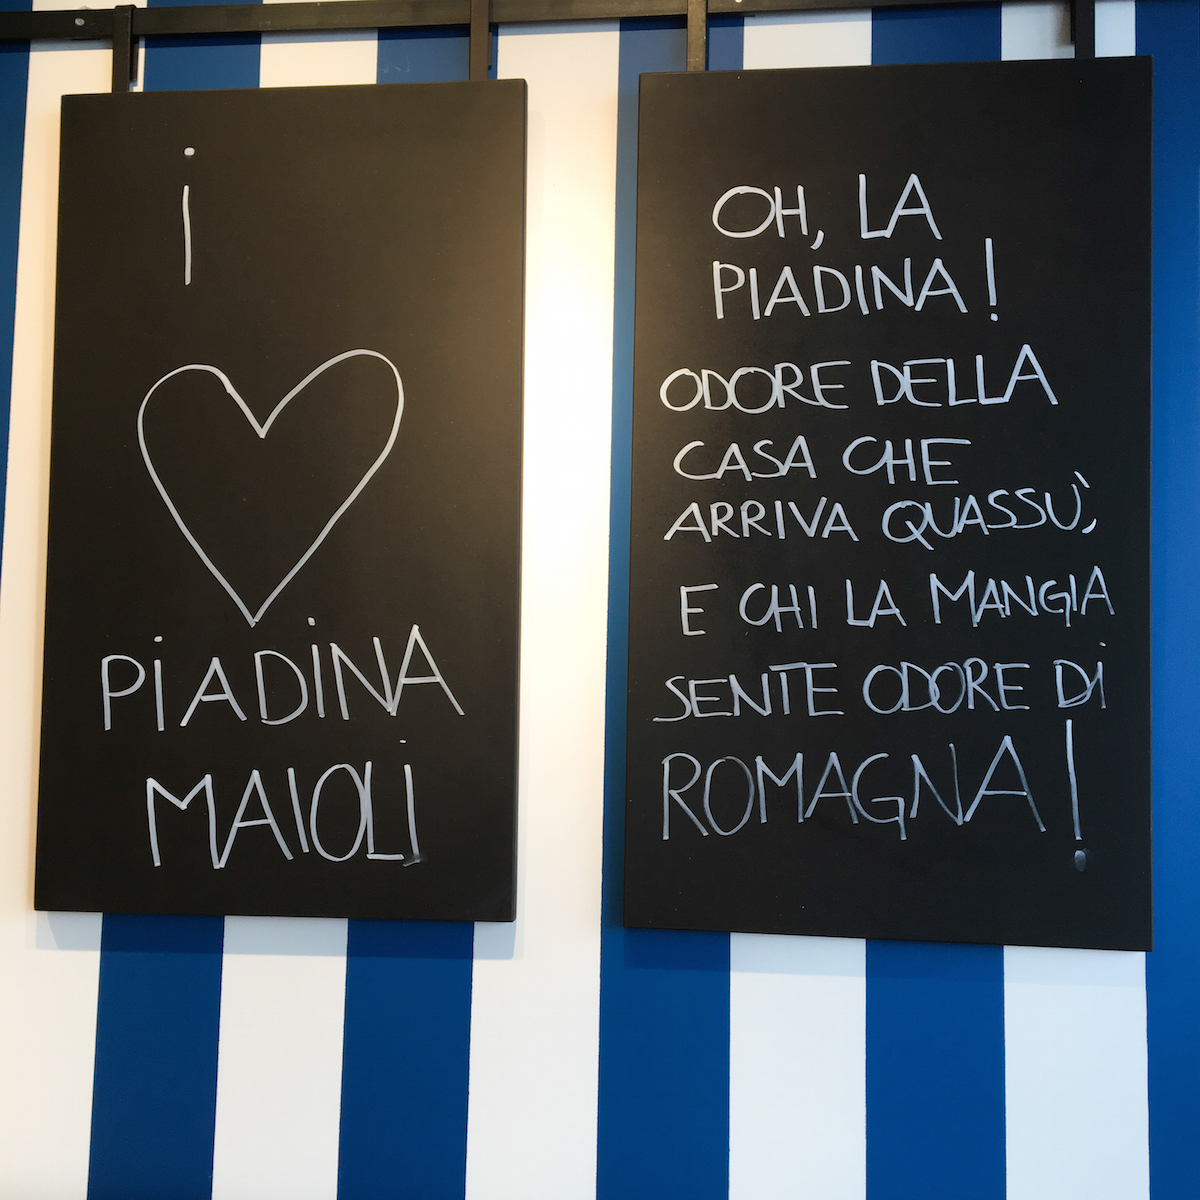 i
PiADiNA
MAIOLi
OH, LA
PIADINA!
ODORE DELLA
CASA CHE
ARRIVA QUASSÙ,
E CHI LA MANGIA
SENTE ODORE Di
ROMAGNA!